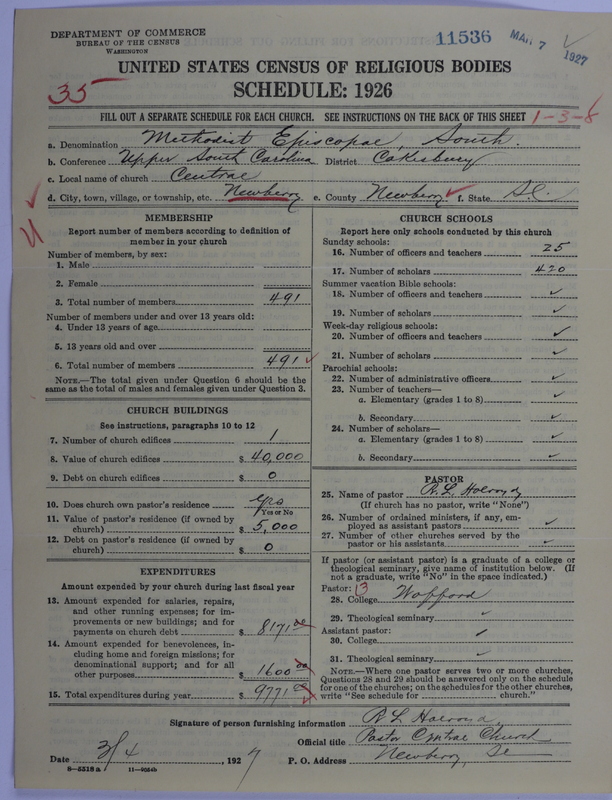 DEPARTMENT OF COMMERCE
BUREAU OF THE CENSUS
WASHINGTON
11536 MAR 7 1927
UNITED STATES CENSUS OF RELIGIOUS BODIES
35
SCHEDULE: 1926
FILL OUT A SEPARATE SCHEDULE FOR EACH CHURCH. SEE INSTRUCTIONS ON THE BACK OF THIS SHEET 1-3-8
a. Denomination Methodist Episcopal, South.
b. Conference Upper South Carolina District Cokesbury
c. Local name of church Central
d. City, town, village, or township, etc. Newberry e. County Newberry f. State S.C.
MEMBERSHIP
Report number of members according to definition of
member in your church
Number of members, by sex:
1. Male
2. Female
3. Total number of members 491
Number of members under and over 13 years old:
4. Under 13 years of age
5. 13 years old and over
6. Total number of members 491
NOTE.—The total given under Question 6 should be the
same as the total of males and females given under Question 3.
CHURCH BUILDINGS
See instructions, paragraphs 10 to 12
7. Number of church edifices 1
8. Value of church edifices $ 40,000
9. Debt on church edifices $ 0
10. Does church own pastor's residence yes
Yes or No
11. Value of pastor's residence (if owned by
church) $ 5,000
12. Debt on pastor's residence (if owned by
church) $ 0
EXPENDITURES
Amount expended by your church during last fiscal year
13. Amount expended for salaries, repairs,
and other running expenses; for im-
provements or new buildings; and for
payments on church debt $ 8171.00
14. Amount expended for benevolences, in-
cluding home and foreign missions; for
denominational support; and for all
other purposes $ 1600.00
15. Total expenditures during year $ 9771.00
CHURCH SCHOOLS
Report here only schools conducted by this church
Sunday schools:
16. Number of officers and teachers 25
17. Number of scholars 420
Summer vacation Bible schools:
18. Number of officers and teachers ✓
19. Number of scholars ✓
Week-day religious schools:
20. Number of officers and teachers ✓
21. Number of scholars ✓
Parochial schools:
22. Number of administrative officers ✓
23. Number of teachers—
a. Elementary (grades 1 to 8) ✓
b. Secondary ✓
24. Number of scholars—
a. Elementary (grades 1 to 8) ✓
b. Secondary ✓
PASTOR
25. Name of pastor R. L. Holroyd
(If church has no pastor, write "None")
26. Number of ordained ministers, if any, em-
ployed as assistant pastors ✓
27. Number of other churches served by the
pastor or his assistants ✓
If pastor (or assistant pastor) is a graduate of a college or
theological seminary, give name of institution below. (If
not a graduate, write "No" in the space indicated.)
Pastor: 13
28. College Wofford
29. Theological seminary ✓
Assistant pastor:
30. College ✓
31. Theological seminary ✓
NOTE.—Where one pastor serves two or more churches,
Questions 28 and 29 should be answered only on the schedule
for one of the churches; on the schedules for the other churches,
write "See schedule for church."
Signature of person furnishing information R L Holroyd
Official title Pastor Central Church
Date 3/4, 1927 P. O. Address Newberry, SC
8-5518 a 11-9064b